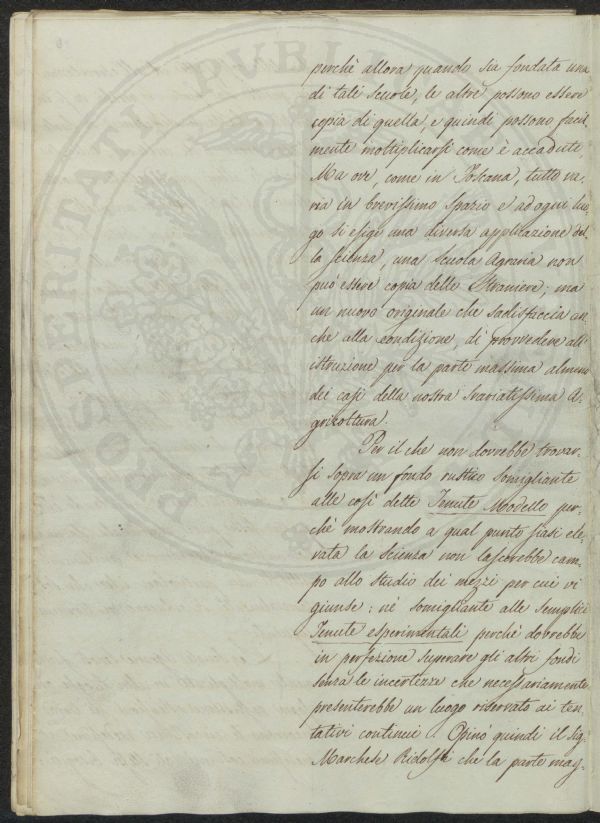 perchè allora quando sia fondata una
di tali Scuole, le altre possono essere
copia di quella, e quindi possono facil
mente moltiplicarsi come è accaduto.
Ma ove, come in Toscana, tutto va,
ria in brevissimo spazio e ad ogni luo,
go si esige una diversa applicazione del,
la scienza, una Scuola Agraria non
può essere copia delle Straniere; ma
un nuovo originale che sadisfaccia an
che alla condizione, di provvedere all'
istruzione per la parte massima almeno
dei casi della nostra svariatissima A,
gricoltura.
Per il che non dovrebbe trovar,
si sopra un fondo rustico somigliante
alle così dette Tenute Modello per,
chè mostrando a qual punto siasi ele,
vata la scienza non lascerebbe cam,
po allo studio dei mezzi per cui vi
giunse: nè somigliante alle semplici
Tenute esperimentali perchè dovrebbe
in perfezione superare gli altri fondi
senza le incertezze che necessariamente
presenterebbe un luogo riservato ai ten,
tativi continui. Opinò quindi il Sig.
Marchese Ridolfi che la parte mag,
PROSPERITATI PVBLI